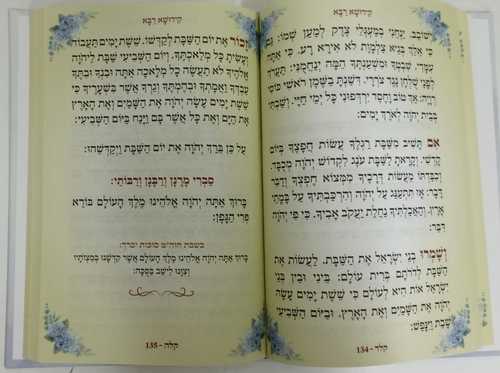 קידושא רבא
ישובב. ינחני במעגלי צדק למען שמו: גם
כי אלך בגיא צלמות לא אירא רע. כי אתה
עמדי. שבטך ומשענתך המה ינחמוני: תערך
לפני שלחן נגד צררי. דשנת בשמן ראשי כוסי
רויה: אך טוב וחסד ירדפוני כל ימי חיי. ושבתי
בבית יהוה לארך ימים:
אם תשיב משבת רגלך עשות חפצך ביום
קדשי. וקראת לשבת ענג לקדוש יהוה מכבד.
וכבדתו מעשות דרכיך ממצוא חפצך ודבר
דבר: אז תתענג על יהוה והרכבתיך על במתי
ארץ. והאכלתיך נחלת יעקב אביך. כי פי יהוה
דבר:
ושמרו בני ישראל את השבת. לעשות את
השבת לדרתם ברית עולם: ביני ובין בני
ישראל אות היא לעולם כי ששת ימים עשה
יהוה את השמים ואת הארץ. וביום השביעי
שבת וינפש:
קלד - 134
קידושא רבא
זכור את יום השבת לקדשו. ששת ימים תעבוד
ועשית כל מלאכתך. ויום השביעי שבת ליהוה
אלהיך לא תעשה כל מלאכה אתה ובנך ובתך
עבדך ואמתך ובהמתך וגרך אשר בשעריך כי
ששת ימים עשה יהוה את השמים ואת הארץ
את הים ואת כל אשר בם וינח ביום השביעי:
על כן ברך יהוה את יום השבת ויקדשהו:
סברי מרנן ורבנן ורבותי:
ברוך אתה יהוה אלהינו מלך העולם בורא
פרי הגפן:
בשבת חוה"מ סוכות יברך:
ברוך אתה יהוה אלהינו מלך העולם אשר קדשנו במצותיו
וצונו לישב בסכה:
קלה - 135